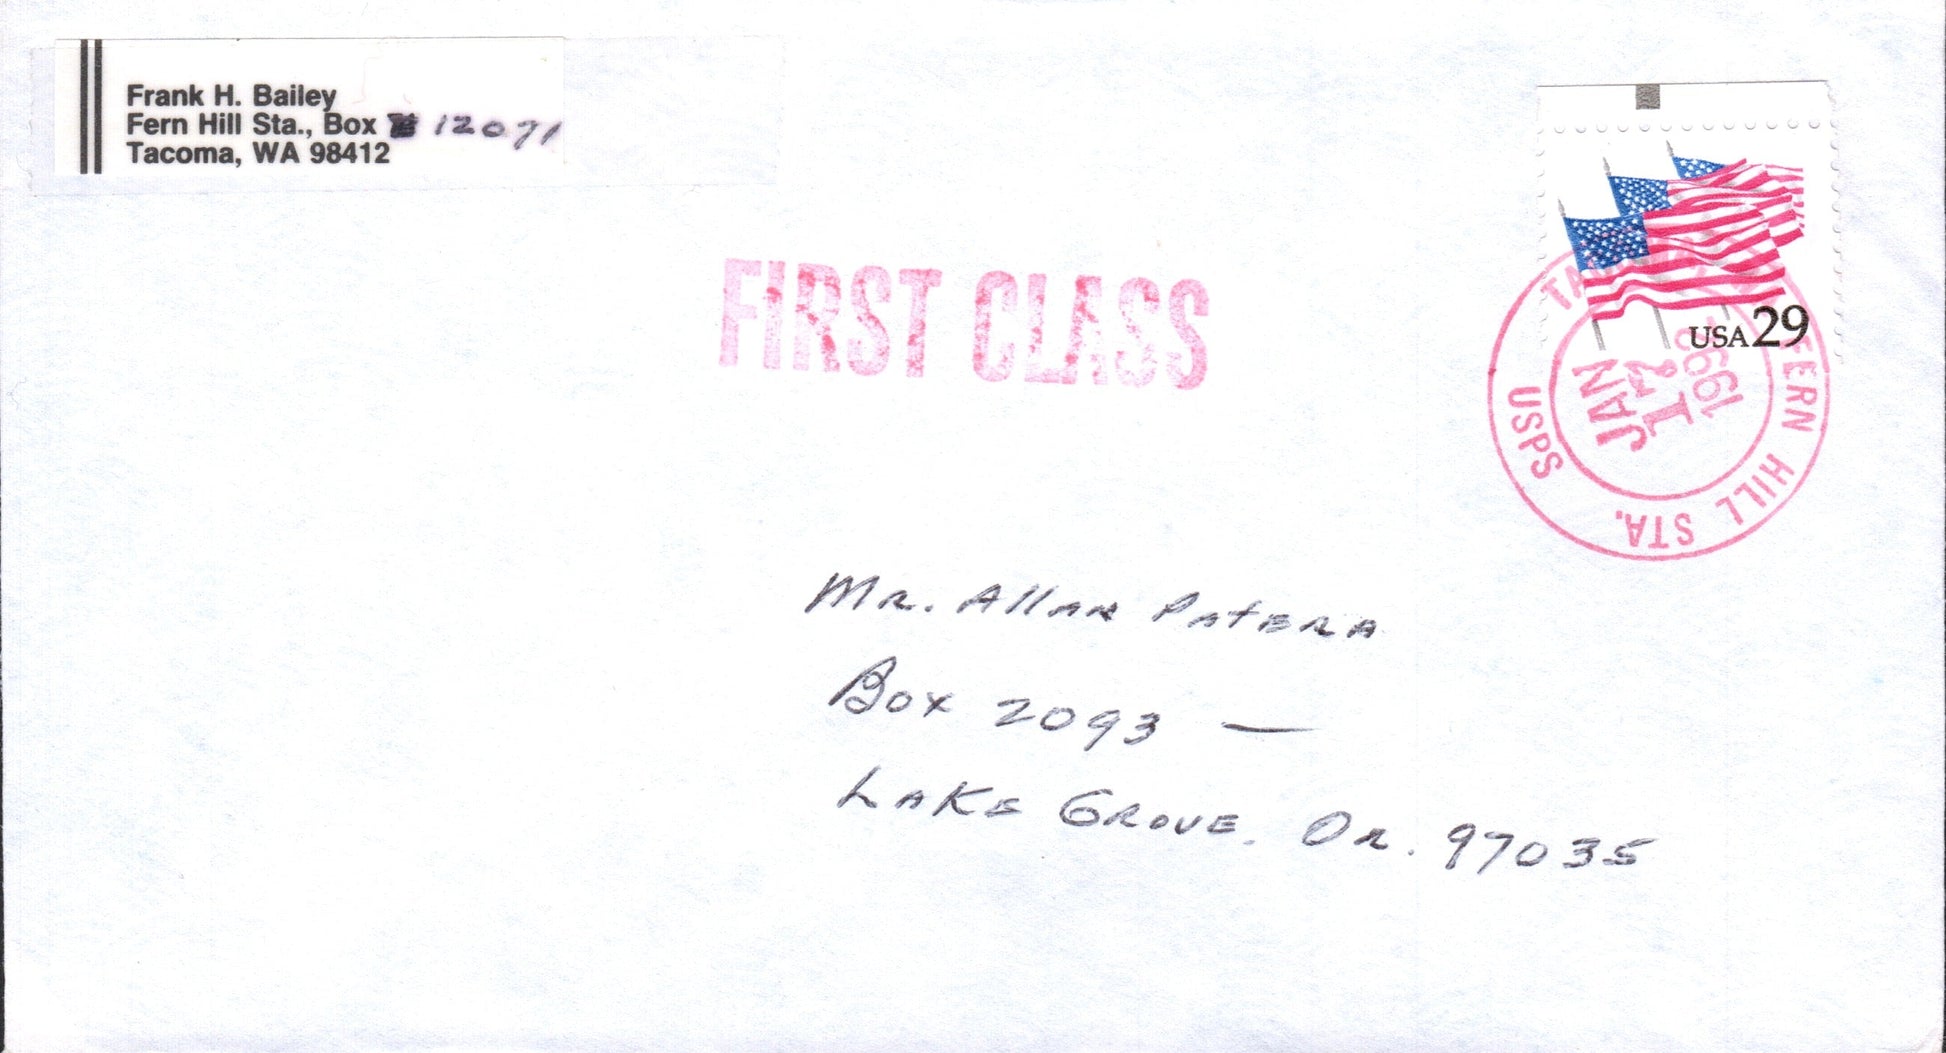 Frank H. Bailey
Fern Hill Sta., Box 12071
Tacoma, WA 98412
FIRST CLASS
USA 29
FERN HILL STA.
USPS
JAN
1992
Mr. Allan Patera
Box 2093 —
Lake Grove, Or. 97035